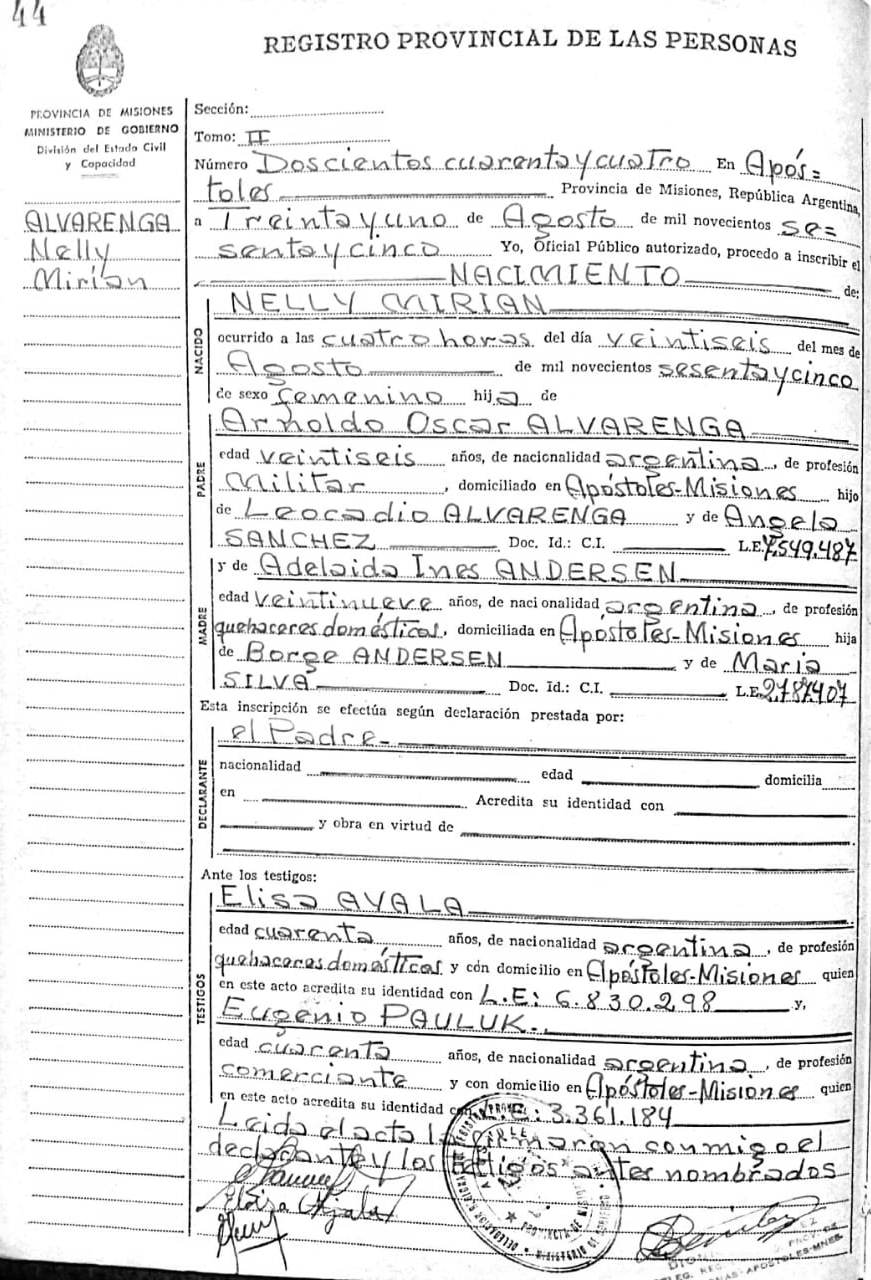 44
REGISTRO PROVINCIAL DE LAS PERSONAS
PROVINCIA DE MISIONES
MINISTERIO DE GOBIERNO
División del Estado Civil
y Capacidad
ALVARENGA
Nelly
Mirian
Sección:
Tomo: II
Número Doscientos cuarenta y cuatro En Após=
toles Provincia de Misiones, República Argentina,
a Treinta y uno de Agosto de mil novecientos se=
senta y cinco Yo, Oficial Público autorizado, procedo a inscribir el
NACIMIENTO de:
NACIDO
NELLY MIRIAN
ocurrido a las cuatro horas del día veintiseis del mes de
Agosto de mil novecientos sesenta y cinco
de sexo femenino hija de
PADRE
Arnoldo Oscar ALVARENGA
edad veintiseis años, de nacionalidad argentina, de profesión
Militar, domiciliado en Apóstoles-Misiones hijo
de Leocadio ALVARENGA y de Angela
SANCHEZ Doc. Id.: C.I. L.E. 7.549.487
MADRE
y de Adelaida Ines ANDERSEN
edad veintinueve años, de nacionalidad argentina, de profesión
quehaceres domésticos, domiciliada en Apóstoles-Misiones hija
de Borge ANDERSEN y de Maria
SILVA Doc. Id.: C.I. L.E. 2.787.407
Esta inscripción se efectúa según declaración prestada por:
DECLARANTE
el Padre-
nacionalidad edad domicilia
en Acredita su identidad con
y obra en virtud de
Ante los testigos:
TESTIGOS
Elisa AYALA
edad cuarenta años, de nacionalidad argentina, de profesión
quehaceres domésticos y con domicilio en Apóstoles-Misiones quien
en este acto acredita su identidad con L.E: 6.830.298 y,
Eugenio PAULUK.
edad cuarenta años, de nacionalidad argentina, de profesión
comerciante y con domicilio en Apóstoles-Misiones quien
en este acto acredita su identidad con L.E: 3.361.184
Leida el acta la firmaron conmigo el
declarante y los testigos antes nombrados
PROVINCIA DE MISIONES
MINISTERIO DE GOBIERNO
APOSTOLES-MNES.